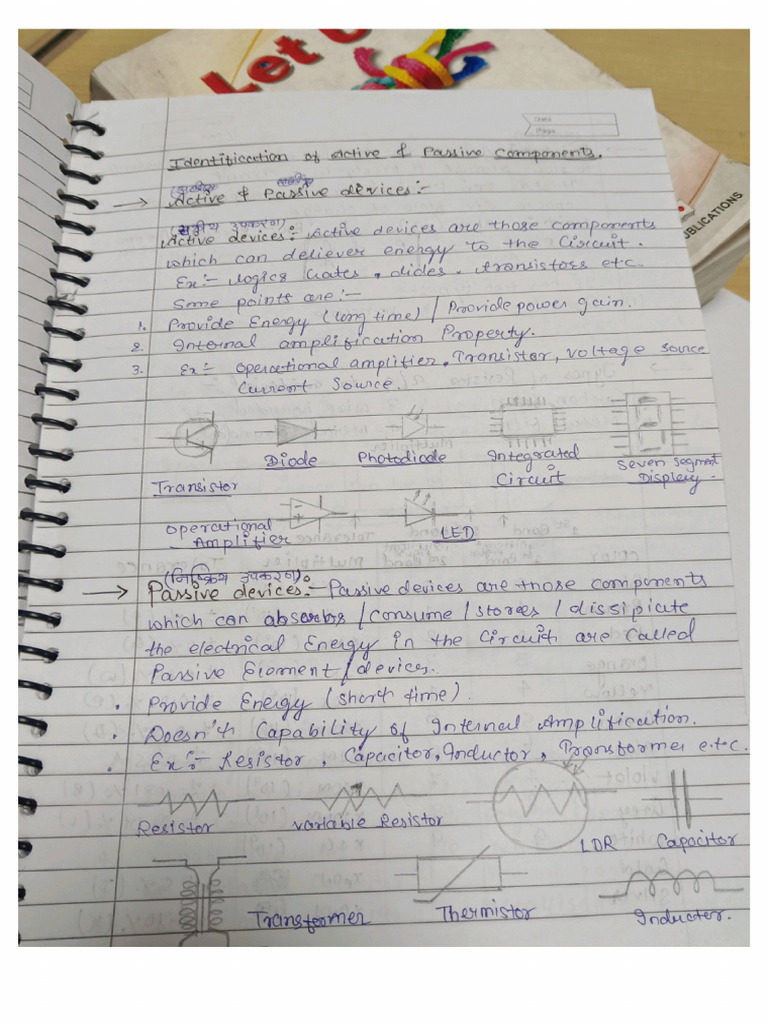 Let U
BLICATIONS
Date
Page
Identification of Active & Passive Components.
→ Active & Passive devices:-
(सक्रीय उपकरण)
Active devices:- Active devices are those components
which can deliever energy to the Circuit.
Ex:- Logics Gates, dides, transistors etc.
Some points are:-
1. Provide Energy (long time) / Provide power gain.
2. Internal amplification Property.
3. Ex:- Operational amplifier, Tranistor, voltage source
Current Source.
Diode Photodiode Integrated Circuit Seven Segment Display
Transistor
Operational Amplifier LED
(निष्क्रिय उपकरण)
→ Passive devices:- Passive devices are those components
which can absorbs / Consume / stores / dissipiate
the electrical Energy in the Circuit are Called
Passive Element / devices.
. Provide Energy (short time).
. Doesn't Capability of Internal Amplification.
. Ex:- Resistor, Capacitor, Inductor, Transformer e.t.c.
Resistor Variable Resistor LDR Capacitor
Transformer Thermistor Inductor.